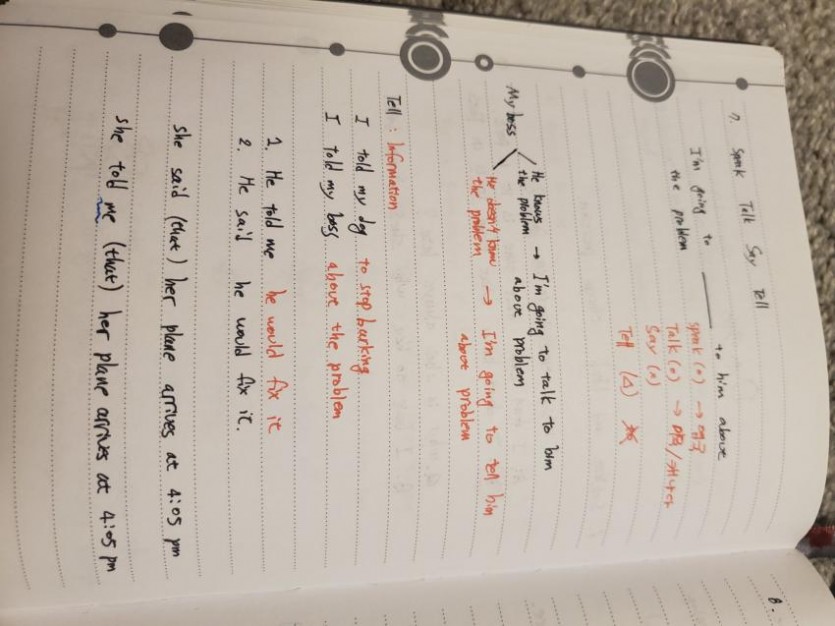 7. Speak Talk Say Tell
I'm going to ______ to him above
the problem
speak (o) →
Talk (o) →
Say (x)
Tell (△)
My boss
He knows the problem → I'm going to talk to him above problem
He doesn't know the problem → I'm going to tell him above problem
Tell : Information
I told my dog to stop barking
I told my boss above the problem
1. He told me he would fix it
2. He said he would fix it.
She said (that) her plane arrives at 4:05 pm
She told me (that) her plane arrives at 4:05 pm
8.